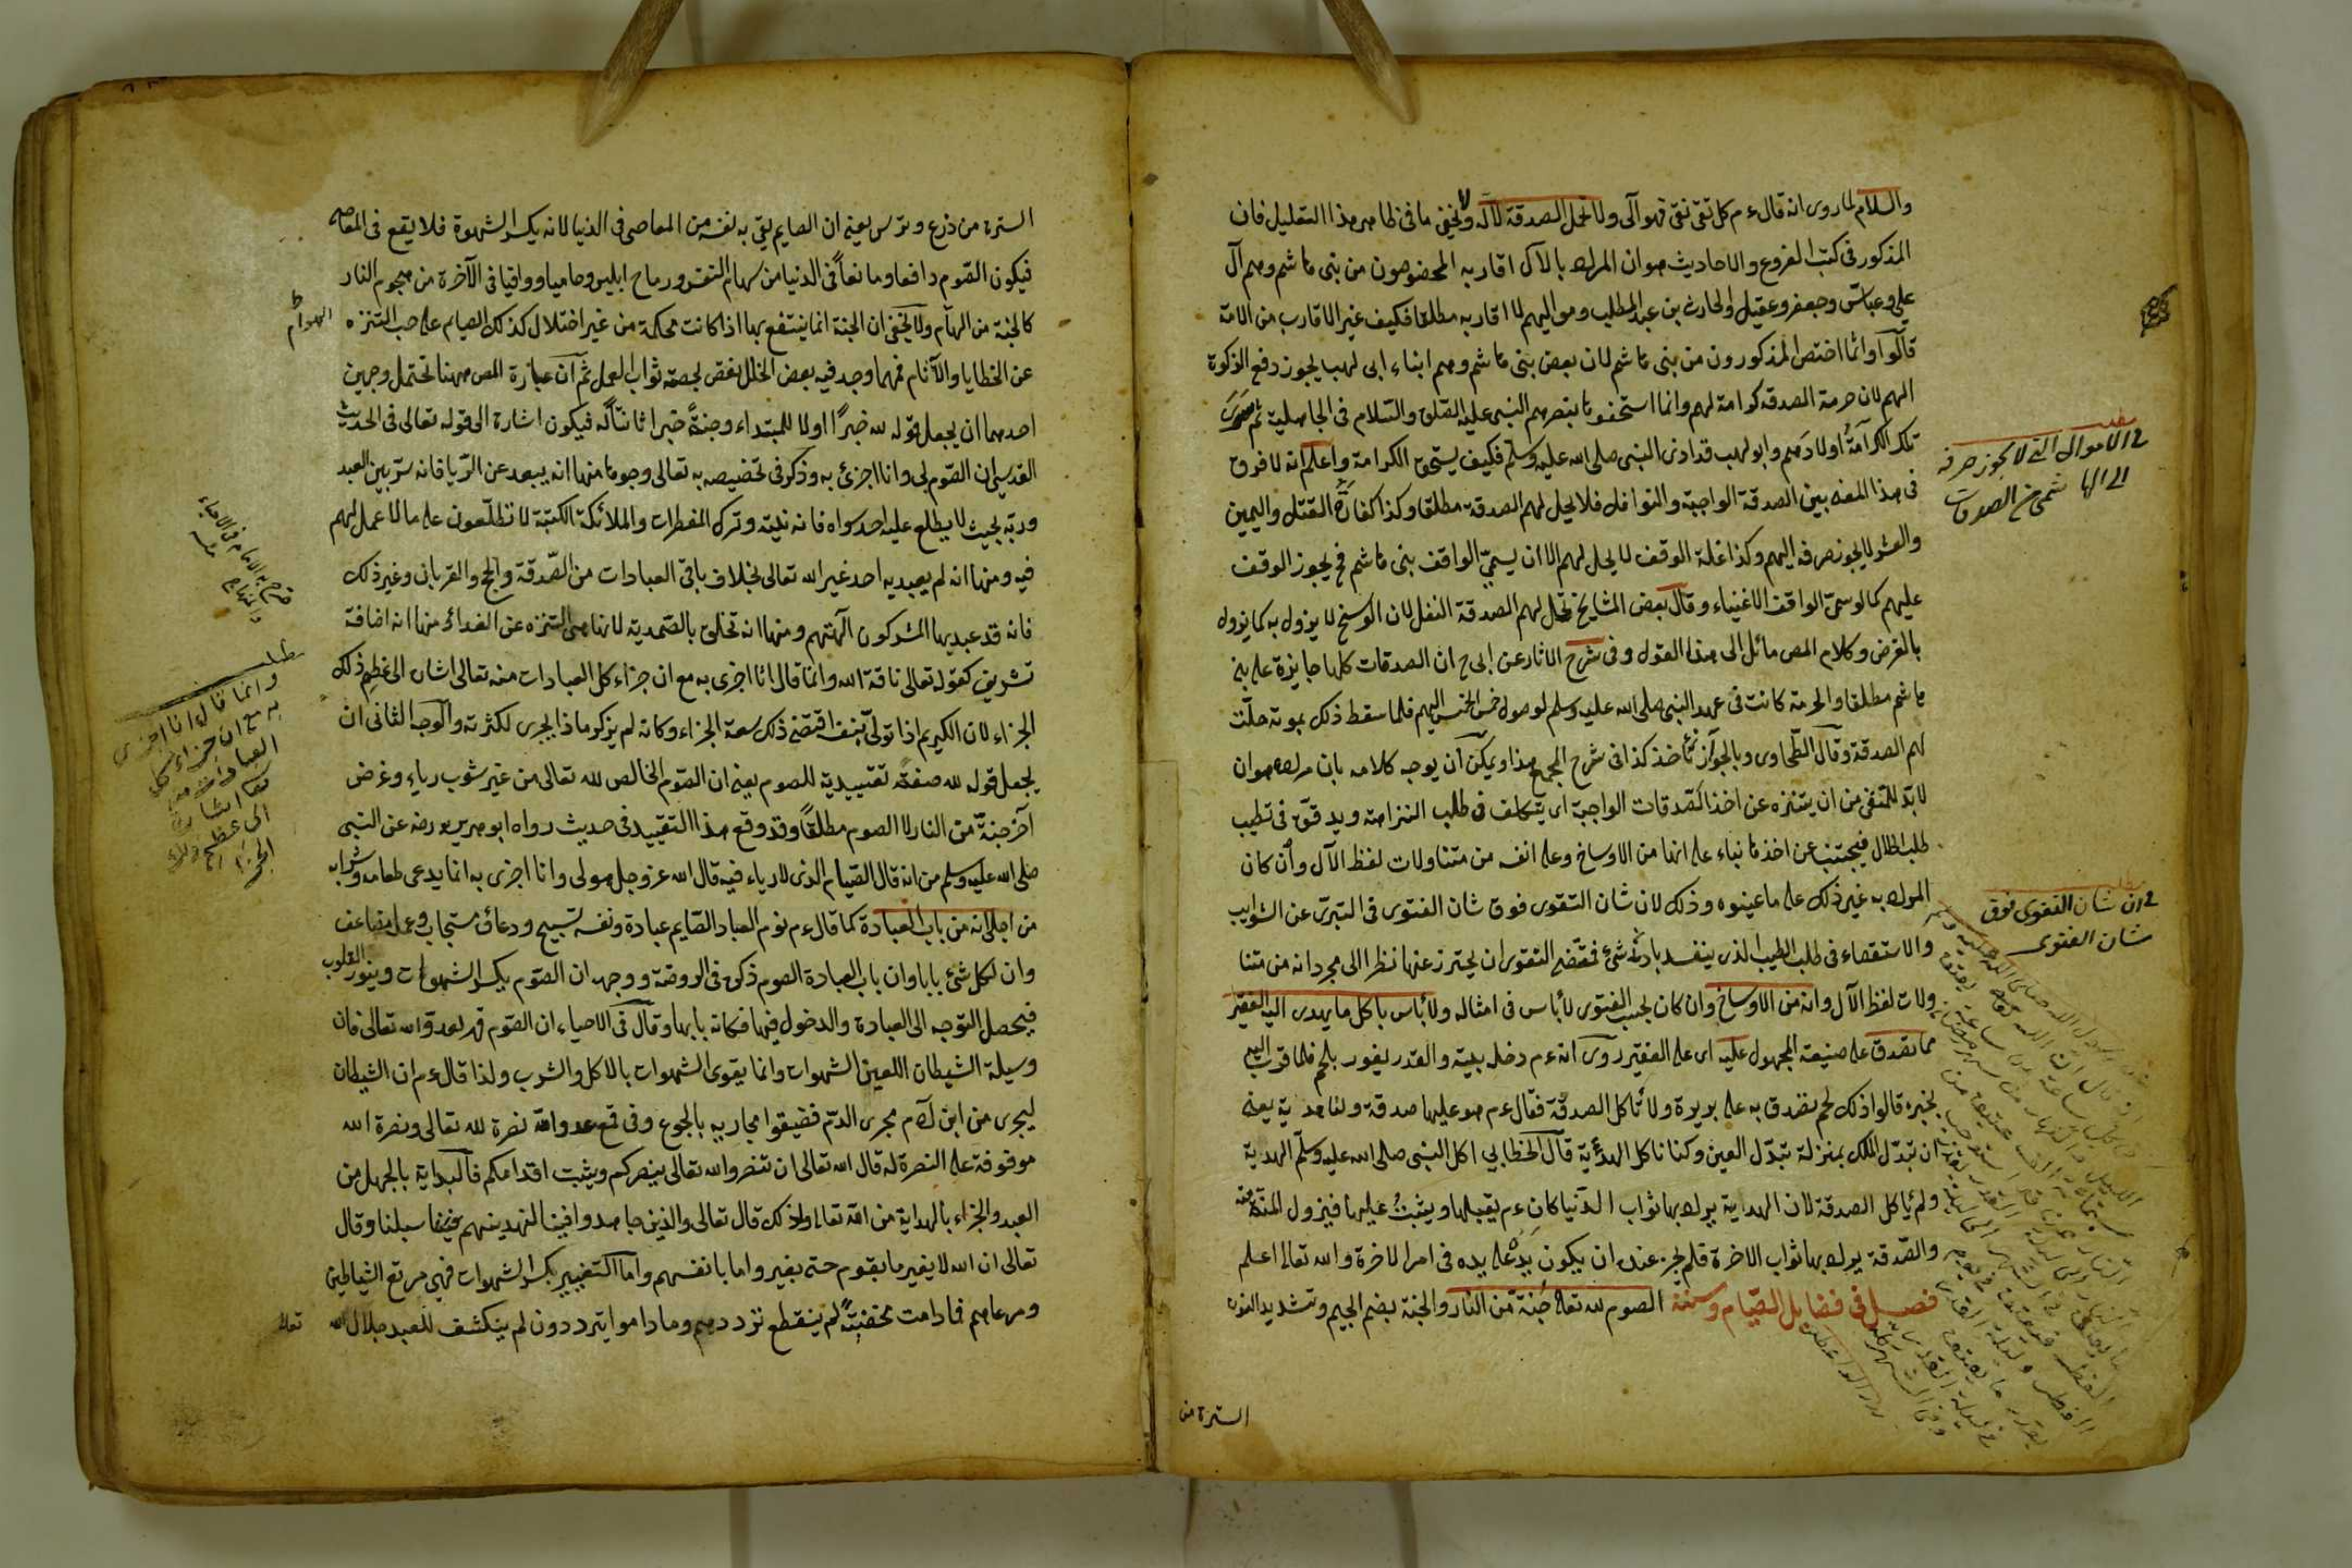 والسلام لما روى انه قال ءم كل تقى نقى فهو آلى ولا تحل الصدقة لآله ولا يخفى ما فى ظاهر هذا التعليل فان
المذكور فى كتب الفروع والاحاديث هو ان المراد بالآل اقاربه المخصوصون من بنى هاشم وهم آل
على وعباس وجعفر وعقيل والحارث بن عبد المطلب ومواليهم لا اقاربه مطلقا فكيف غير الاقارب من الامة
قالوا وانما اختص المذكورون من بنى هاشم لان بعض بنى هاشم وهم ابناء ابى لهب يجوز دفع الزكوة
اليهم لان حرمة الصدقة كرامة لهم وانما استحقوها بنصرهم النبى عليه الصلوة والسلام فى الجاهلية ثم
تلك الكرامة اولادهم وابو لهب قد اذى النبى صلى الله عليه وسلم فكيف يستحق الكرامة واعلم انه لا فرق
فى هذا المعنى بين الصدقة الواجبة والنوافل فلا يحل لهم الصدقة مطلقا وكذا كفارة القتل واليمين
والعشر لا يجوز صرفه اليهم وكذا غلة الوقف لا يحل لهم الا ان يسمى الواقف بنى هاشم فح يجوز الوقف
عليهم كما لو سمى الواقف الاغنياء وقال بعض المشايخ تحل لهم الصدقة النفل لان الوسخ لا يزول به كما يزول
بالفرض وكلام المص مائل الى هذا القول وفى شرح الاثار عن ابى ح ان الصدقات كلها جايزة على بنى
هاشم مطلقا والحرمة كانت فى عهد النبى صلى الله عليه وسلم لوصول خمس الخمس اليهم فلما سقط ذلك بموته حلت
لهم الصدقة وقال الطحاوى وبالجواز نأخذ كذا فى شرح المجمع هذا ويمكن ان يوجه كلامه بان مراده هو ان
لا بد للمتقى من ان يتنزه عن اخذ الصدقات الواجبة اى يتكلف فى طلب النزاهة ويدقق فى تطيب
طلب الحلال فيجتنب عن اخذها بناء على انها من الاوساخ وعلى انفه من متناولات لفظ الآل وان كان
المراد به غير ذلك على ما عينوه وذلك لان شان التقوى فوق شان الفتوى فى التبرى عن الشوايب
والاستقصاء فى طلب الطيب الذى يفسد بادنى شئ فقتضى التقوى ان يحترز عنها نظرا الى مجرد انه من متنا
ولات لفظ الآل وانه من الاوساخ وان كان بحسب الفتوى لا بأس فى امثاله ولا بأس باكل ما يهدى اليه الفقير
مما تصدق على صنيعة المجهول عليه اى على الفقير روى انه ءم دخل بيته والقدر يفور بلحم فلما قرب اليه
بخبزه قالوا ذلك لحم تصدق به على بريرة ولا تأكل الصدقة فقال ءم هو عليها صدقة ولنا هدية يعنى
ان تبدل الملك بمنزلة تبدل العين وكنا ناكل الهدية قال الخطابى اكل النبى صلى الله عليه وسلم الهدية
ولم ياكل الصدقة لان الهداية يراد بها ثواب الدنيا كان ءم يقبلها ويثيب عليها فيزول المنة عنه
والصدقة يراد بها ثواب الاخرة فلم يجز عنده ان يكون يد على يده فى امر الاخرة والله تعالى اعلم
فصل فى فضايل الصيام وسننه الصوم لله تعالى جنة من النار والجنة بضم الجيم وتشديد النون
السترة من
فى الاموال التى لا يجوز صرفه
الى الهاشمى من الصدقات
فى ان شان التقوى فوق
شان الفتوى
السترة من ذرع وترس يعنى ان الصايم يقى به نفسه من المعاصى فى الدنيا لانه يكسر الشهوة فلا يقع فى المعاصى
فيكون الصوم دافعا ومانعا فى الدنيا من سهام النفس ورماح ابليس وحاميا وواقيا فى الآخرة من هجوم النار
كالجنة من الهآم ولا يخفى ان الجنة انما ينتفع بها اذا كانت محكمة من غير اختلال كذلك الصيام على حسب التنزه
عن الخطايا والآثام فمهما وجد فيه بعض الخلل نقص بحصته ثواب العمل ثم ان عبارة المص ههنا تحتمل وجهين
احدهما ان يجعل قوله لله خبرًا اولا للمبتداء وجنة خبرا ثانيا له فيكون اشارة الى قوله تعالى فى الحديث
القدسى ان الصوم لى وانا اجزئ به وذكر فى تخصيصه به تعالى وجوها منها انه يبعد عن الريا فانه ستر بين العبد
وربه بحيث لا يطلع عليه احد سواه فانه نيته وترك المفطرات والملائكة الكتبة لا تطلعون على ما لا عمل لهم
فيه ومنها انه لم يعبد به احد غير الله تعالى بخلاف باقى العبادات من الصدقة والحج والقربان وغير ذلك
فانه قد عبد بها المشركون آلهتهم ومنها انه تخلق بالصمدية لانها هى التنزه عن الغذاء ومنها انه اضافة
تشريف كقوله تعالى ناقة الله وانما قال انا اجزى به مع ان جزاء كل العبادات منه تعالى اشارة الى عظم ذلك
الجزاء لان الكريم اذا تولى بنفسه اقتضى ذلك سعة الجزاء وكانه لم يذكر ماذا يجرى لكثرته والوجه الثانى ان
يجعل قوله لله صفة تقييدية للصوم يعنى ان الصوم الخالص لله تعالى من غير شوب رياء وغرض
آخر جنة من النار لا الصوم مطلقًا وقد وقع هذا التقييد فى حديث رواه ابو هريرة رضه عن النبى
صلى الله عليه وسلم من انه قال الصيام الذى لا رياء فيه قال الله عز وجل هو لى وانا اجزى به انما يدع طعامه وشرابه
من اجلى انه من باب العبادة كما قال ءم نوم العباد الصايم عبادة ونفسه تسبيح ودعاؤه مستجاب وعمله مضاعف
وان لكل شئ بابا وان باب العبادة الصوم ذكره فى الروضة ووجهه ان الصوم يكسر الشهوات وينور القلوب
فيحصل التوجه الى العبادة والدخول فيها فكانه بابها وقال فى الاحياء ان الصوم قهر لعدو الله تعالى فان
وسيلة الشيطان اللعين الشهوات وانما يقوى الشهوات بالاكل والشرب ولذا قال ءم ان الشيطان
ليجرى من ابن آدم مجرى الدم فضيقوا مجاريه بالجوع وفى قمع عدو الله نصرة لله تعالى ونصرة الله
موقوفة على النصرة له قال الله تعالى ان تنصروا الله تعالى ينصركم ويثبت اقدامكم فالبداية بالجهد من
العبد والجزاء بالهداية من الله تعالى ولذلك قال تعالى والذين جاهدوا فينا لنهدينهم سبلنا وقال
تعالى ان الله لا يغير ما بقوم حتى يغيروا ما بانفسهم واما التغيير بكسر الشهوات فهى مرتع الشياطين
ومرعاهم فما دامت مخضبة لم ينقطع ترددهم وما داموا يترددون لم ينكشف للعبد جلال الله
تعالى
الهوام
صرح به الامام فى الاحياء
مطلب
وانما قال انا اجزى
به مع ان جزاء كل
العبادات منه
تعا اشارة
الى عظم ذلك
الجزاء